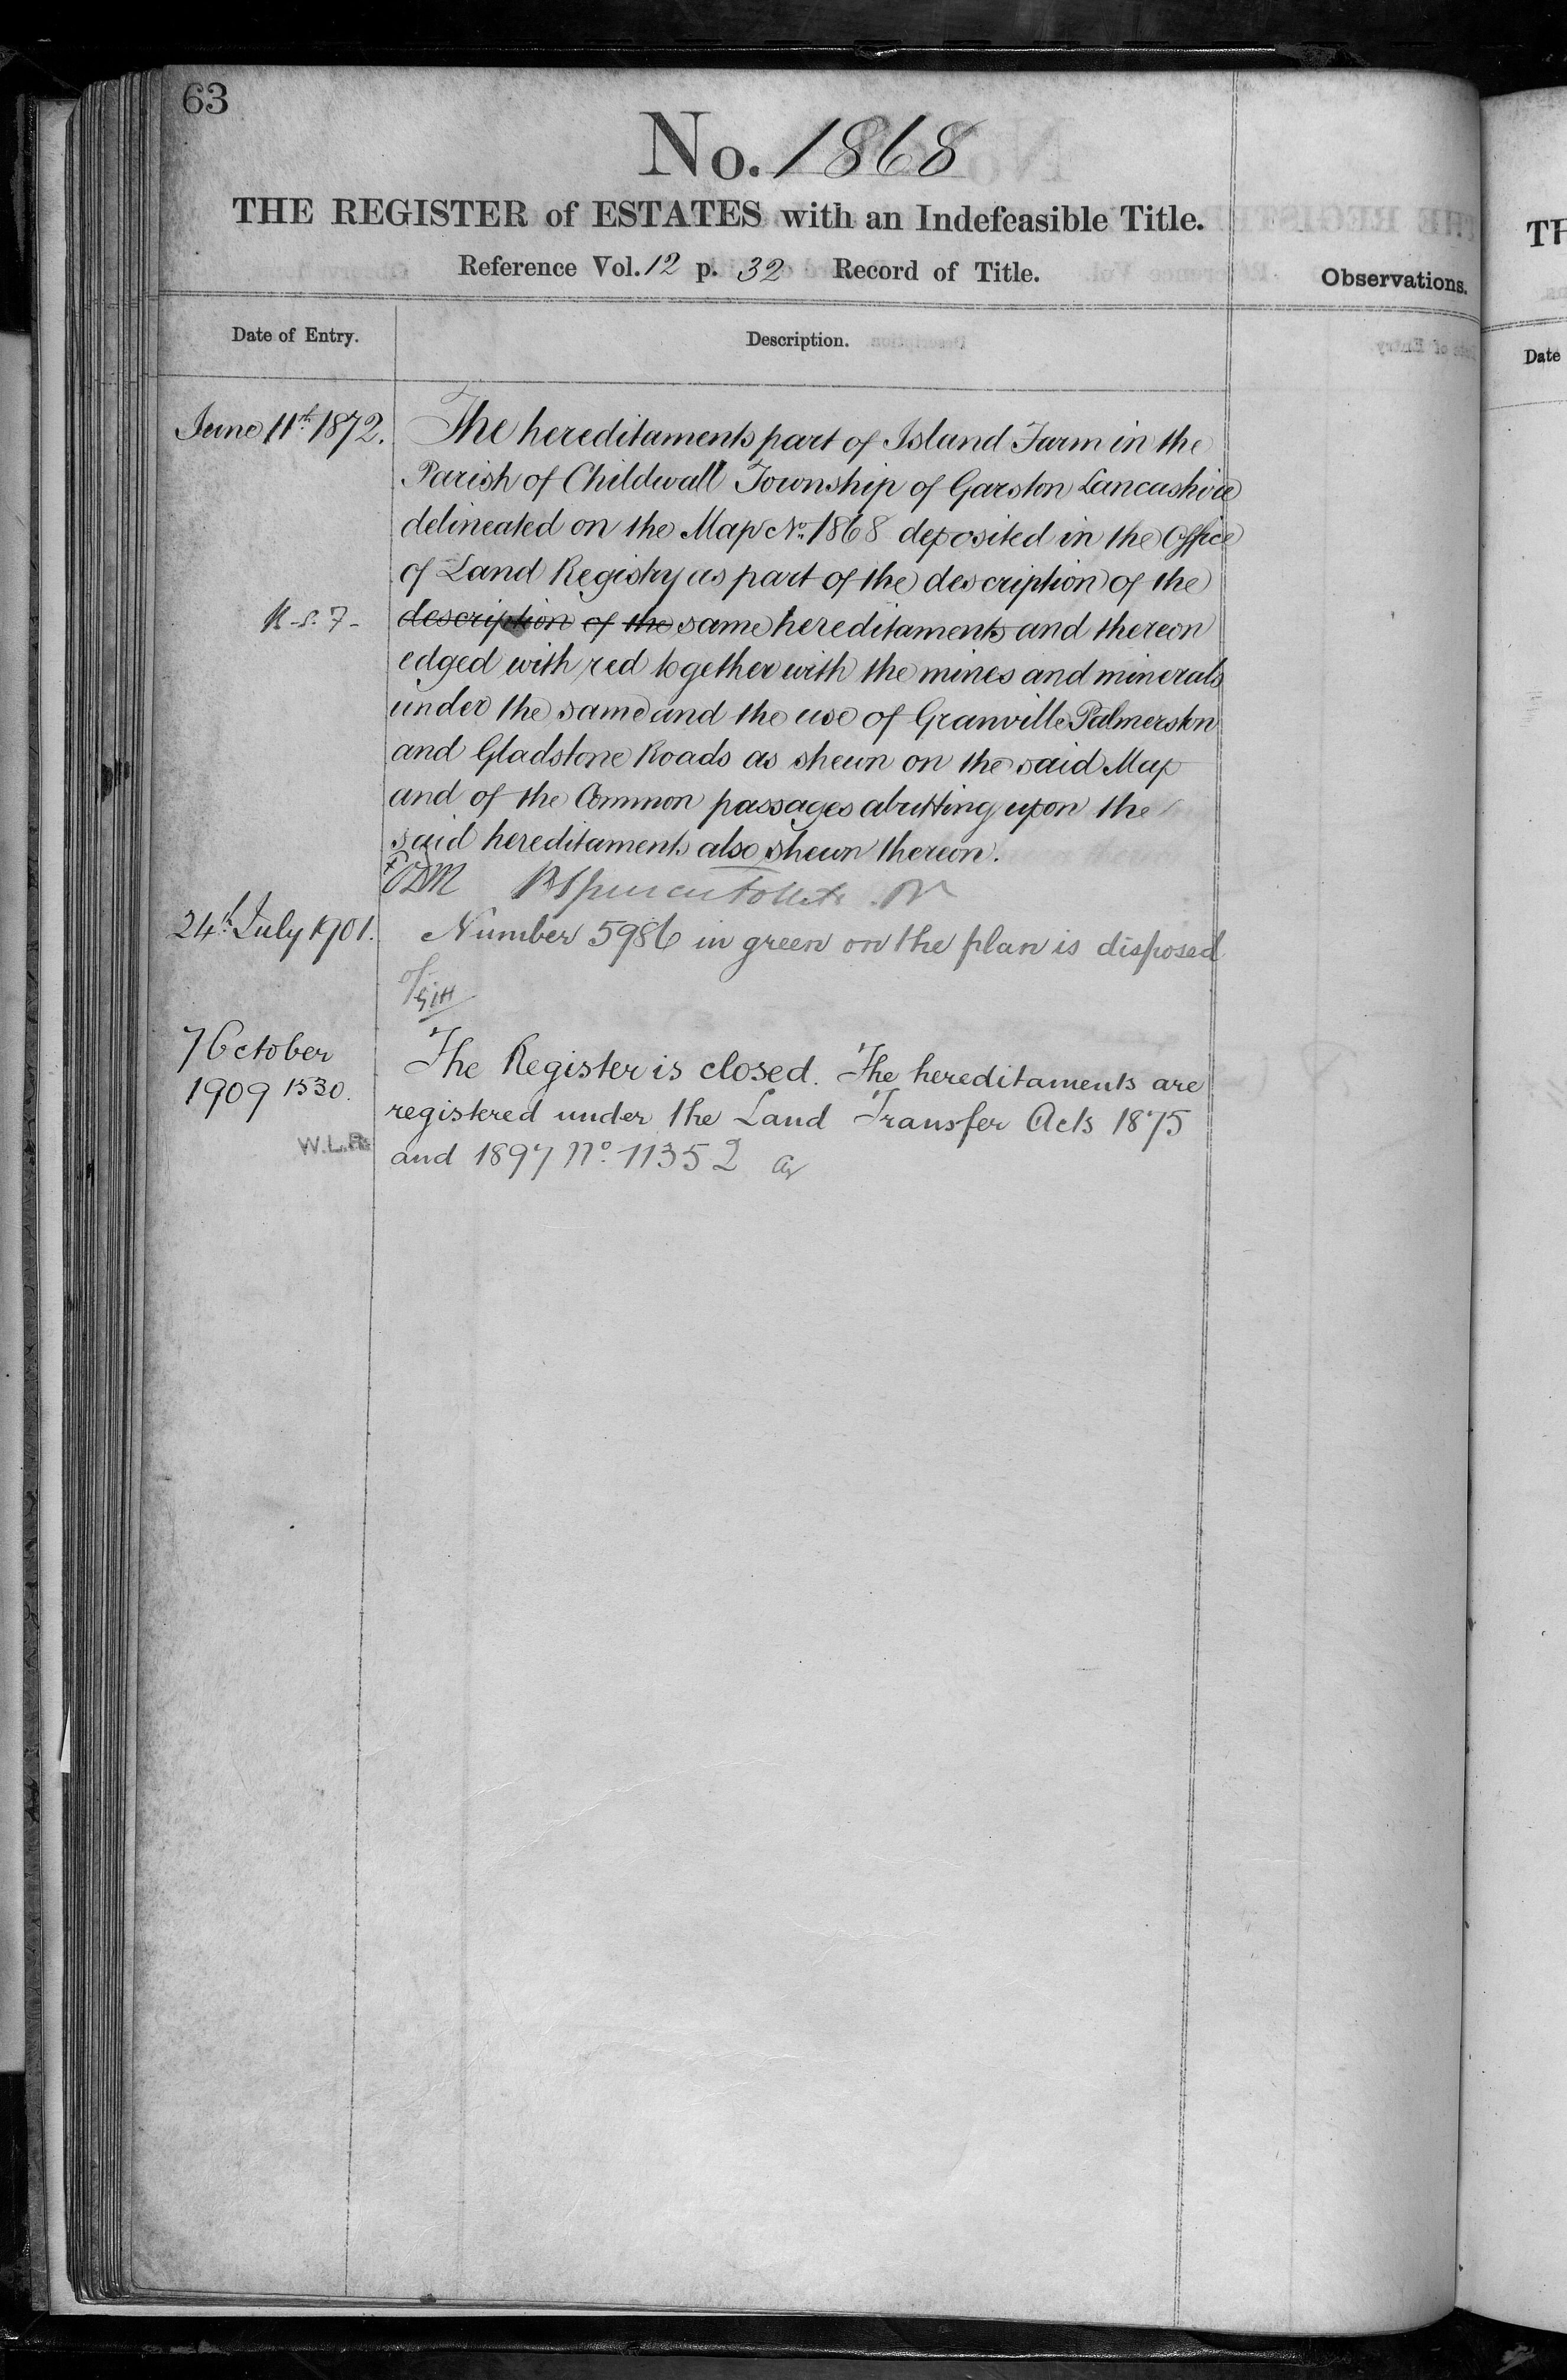 63
No. 1868
THE REGISTER of ESTATES with an Indefeasible Title.
Reference Vol. 12 p. 32 Record of Title.
Observations.
Date of Entry.
Description.
June 11th 1872.
The hereditaments part of Island Farm in the
Parish of Childwall Township of Garston Lancashire
delineated on the Map No. 1868 deposited in the Office
of Land Registry as part of the description of the
description of the same hereditaments and thereon
edged with red together with the mines and minerals
under the same and the use of Granville Palmerston
and Gladstone Roads as shewn on the said Map
and of the Common passages abutting upon the
said hereditaments also shewn thereon.
24th July 1901.
Number 5986 in green on the plan is disposed
of
7 October
1909 1530.
W.L.
The Register is closed. The hereditaments are
registered under the Land Transfer Acts 1875
and 1897 No. 11352
TH
Date